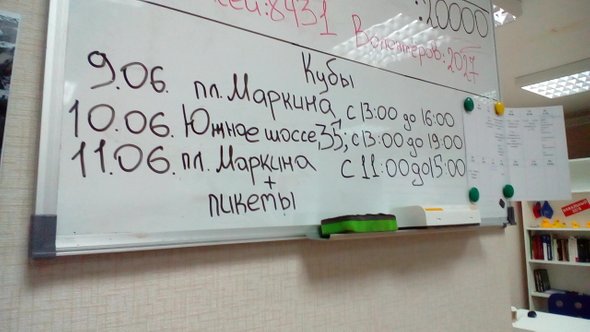 :8431
:20000
Волонтеров: 2027
Кубы
9.06. пл. Маркина с 13:00 до 16:00
10.06. Южное шоссе, 35; с 13:00 до 19:00
11.06. пл. Маркина с 11:00 до 15:00
+
пикеты